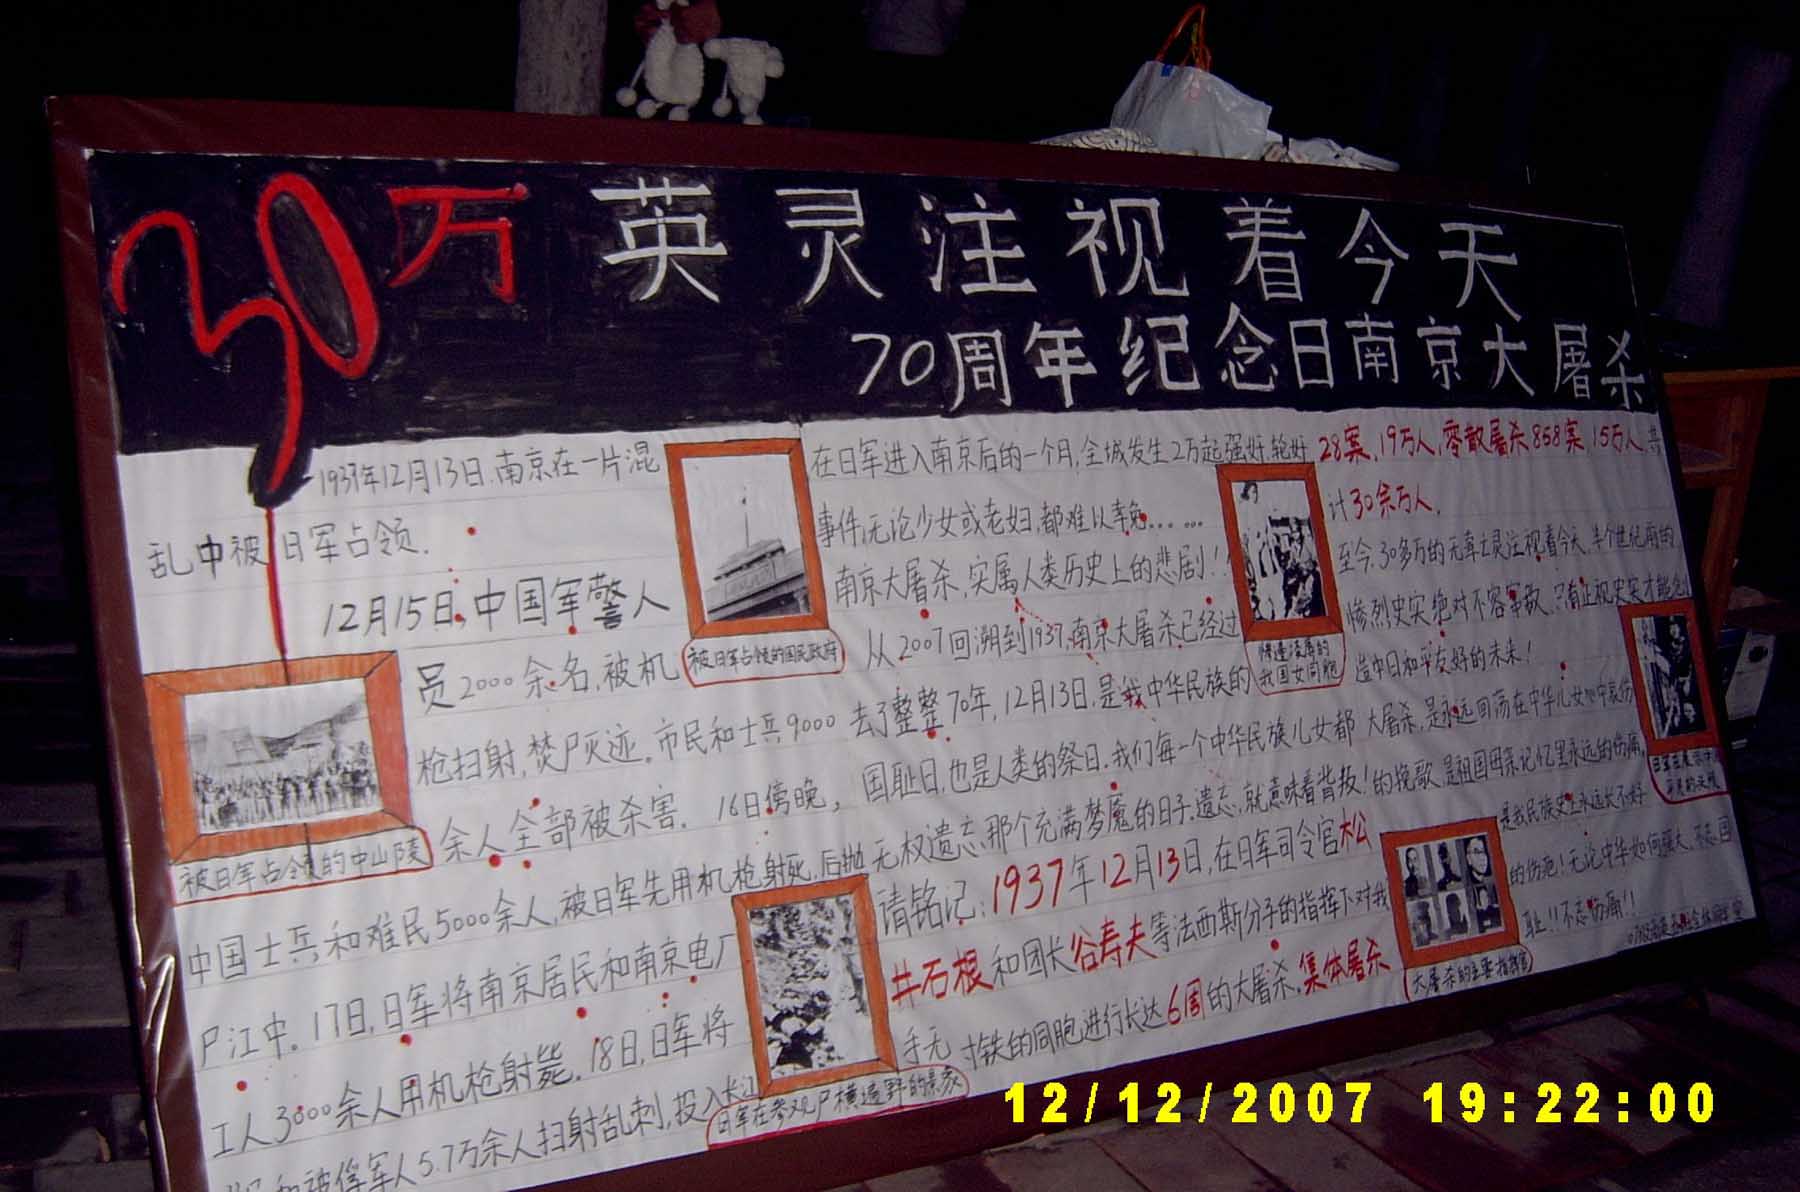 30万 英灵注视着今天
70周年纪念日南京大屠杀
1937年12月13日,南京在一片混
乱中被日军占领.
12月15日,中国军警人
员2000余名,被机
枪扫射,焚尸灭迹。市民和士兵9000
余人全部被杀害. 16日傍晚,
中国士兵和难民5000余人,被日军先用机枪射死,后抛
尸江中。17日,日军将南京居民和南京电厂
工人3000余人用机枪射毙. 18日,日军将
和被俘军人5.7万余人扫射乱刺,投入长江
被日军占领的中山陵
被日军占领的国民政府
日军在参观尸横遍野的景象
在日军进入南京后的一个月,全城发生2万起强奸,轮奸
事件,无论少女或老妇,都难以幸免……
南京大屠杀,实属人类历史上的悲剧!!
从2007回溯到1937,南京大屠杀已经过
去了整整70年,12月13日,是我中华民族的
国耻日,也是人类的祭日.我们每一个中华民族儿女都
无权遗忘,那个充满梦魇的日子.遗忘,就意味着背叛!
请铭记:1937年12月13日,在日军司令官松
井石根和团长谷寿夫等法西斯分子的指挥下对我
手无寸铁的同胞进行长达6周的大屠杀.集体屠杀
惨遭凌辱的
我国女同胞
28案,19万人,零散屠杀858案,15万人共
计30余万人.
至今,30多万的无辜亡灵注视着今天,半个世纪前的
惨烈史实绝对不容窜改,只有正视史实才能创
造中日和平友好的未来!
大屠杀,是永远回荡在中华儿女心中哀伤
的挽歌,是祖国母亲记忆里永远的伤痛,
是我民族史上永远长不好
的伤疤!无论中华如何强大,不忘国
耻!!不忘伤痛!!
大屠杀的主要指挥官
12/12/2007 19:22:00